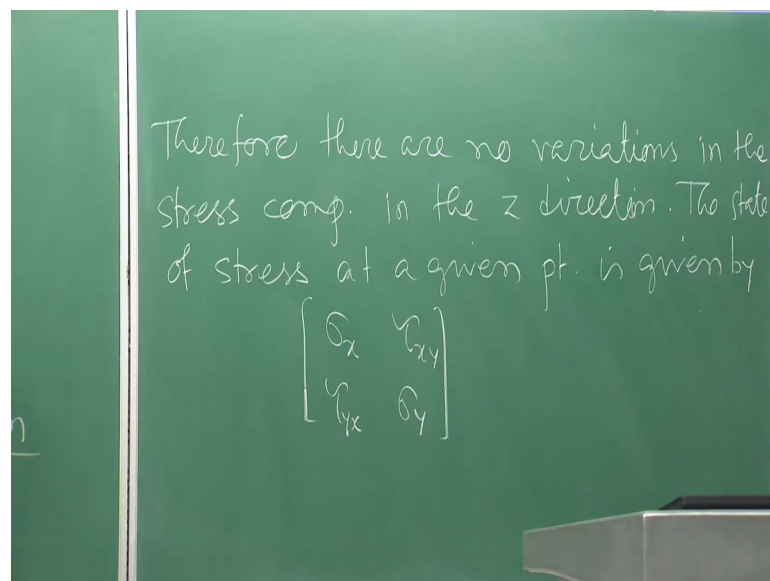 Therefore there are no variations in the
stress comp. in the z direction. The state
of stress at a given pt. is given by
[σx τxy
τyx σy]
n